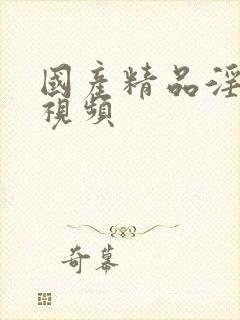 國產精品淫
視頻
奇幕